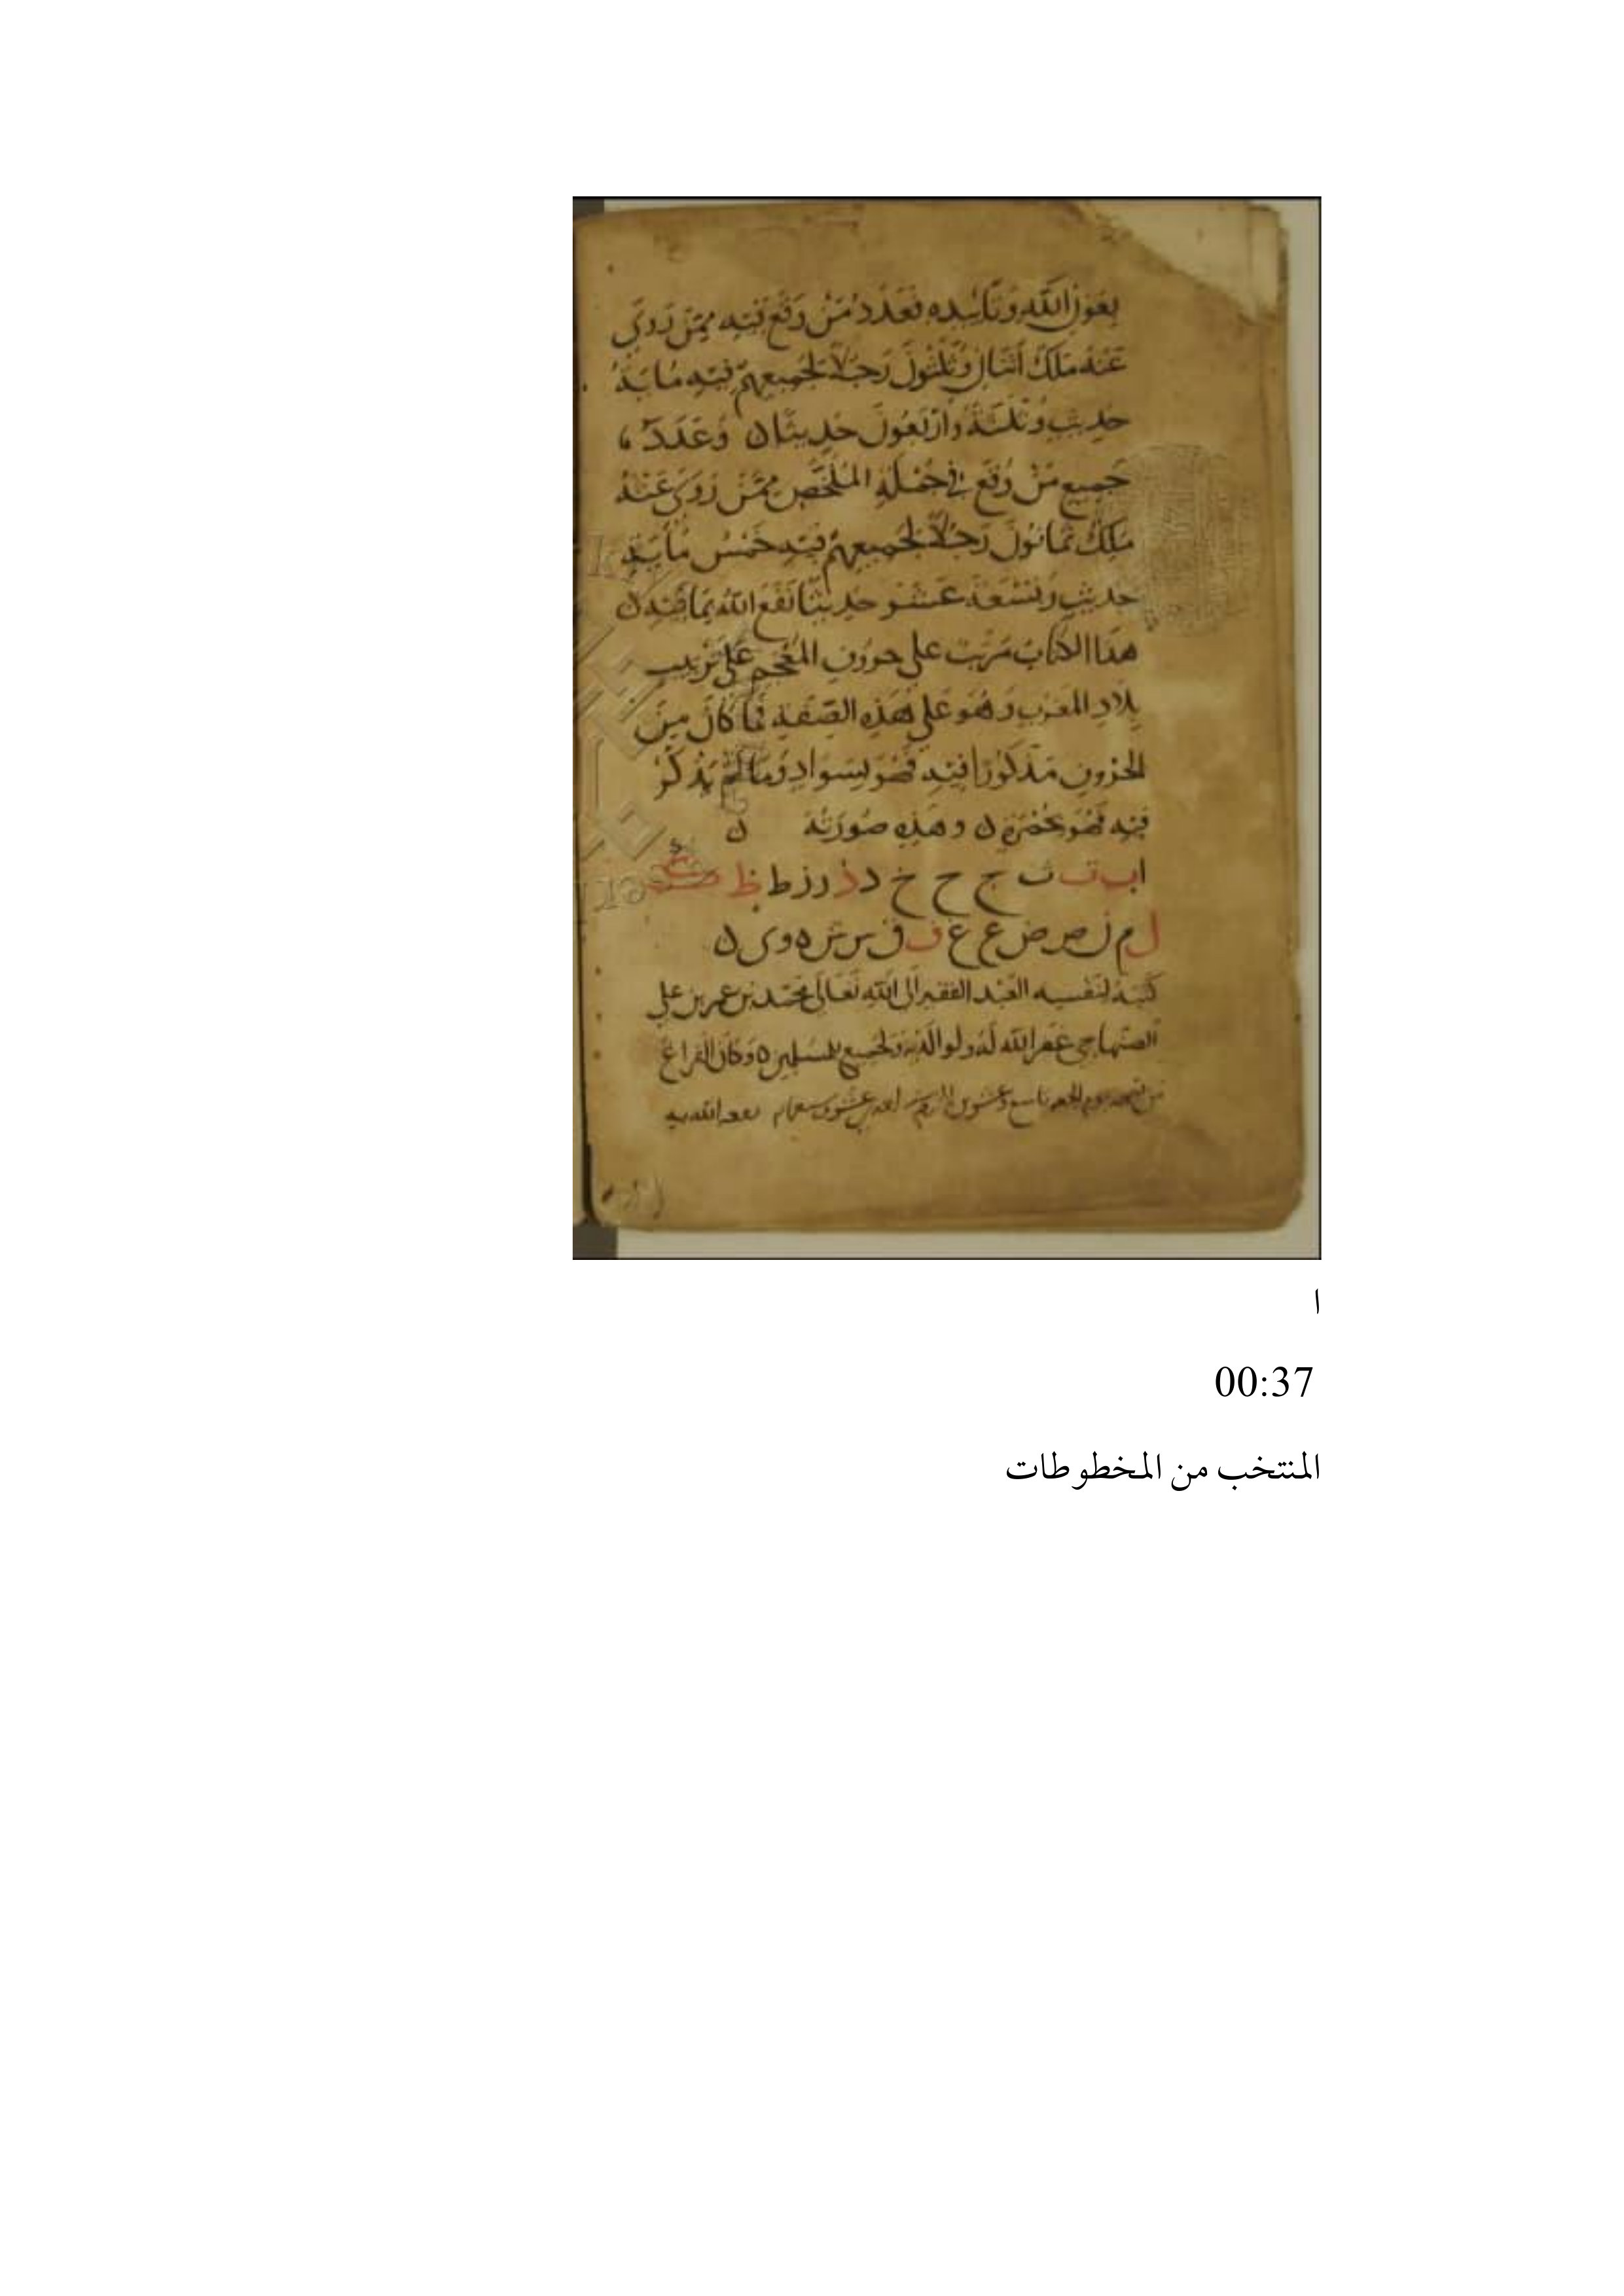 بعون الله وتأييده فعدد من وقع فيه ممن روى
عنه ملك اثنان وثلثون رجلا لجميعهم فيه مائة
حديث وثلثة واربعون حديثا ن وعدد
جميع من وقع في جملة الملخص ممن روى عنه
ملك ثمانون رجلا لجميعهم فيه خمس مائة
حديث وتسعة عشر حديثا نفع الله بما فيه ن
هذا الكتاب مرتب على حروف المعجم على ترتيب
بلاد المغرب وهو على هذه الصفة فما كان من
الحروف مذكورا فيه فهو بسواد وما لم يذكر
فيه فهو بحمرة ن وهذه صورته ن
ا ب ت ث ج ح خ د ذ ر ز ط ظ ك
ل م ن ص ض ع غ ف ق س ش ه و ى ن
كتبه لنفسه العبد الفقير الى الله تعالى محمد بن عمر بن علي
الصنهاجي غفر الله له ولوالديه ولجميع المسلمين ه وكان الفراغ
من يوم الجمعة تاسع وعشرين نفعه الله به
ا
00:37
المنتخب من المخطوطات